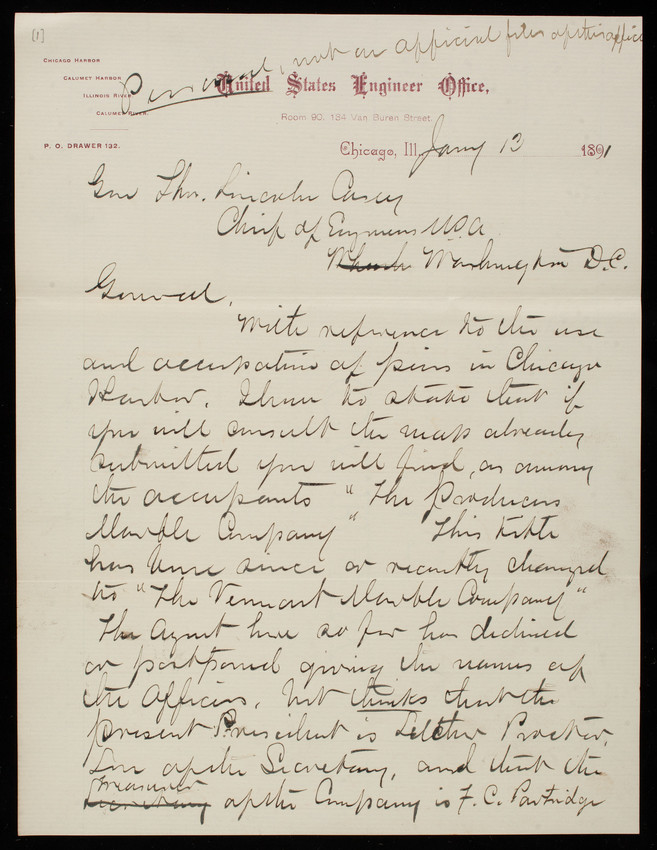 [1]
Personal, not on official files of this office
Chicago Harbor
Calumet Harbor
Illinois River
Calumet River.
P. O. Drawer 192.
United States Engineer Office,
Room 90, 134 Van Buren Street.
Chicago, Ill. Jany 13 1891
Gen Thos. Lincoln Casey
Chief of Engineers USA
Washington D.C.
General,
With reference to the use
and occupation of piers in Chicago
Harbor, I have to state that if
you will consult the map already
submitted you will find, as among
the occupants "The Producers
Marble Company" This title
has been since or recently changed
to "The Vermont Marble Company"
The Agent here so far has declined
or postponed giving the names of
the Officers, but thinks that the
present President is Proctor,
Son of the Secretary, and that the
Treasurer
Secretary of the Company is F. C. Partridge